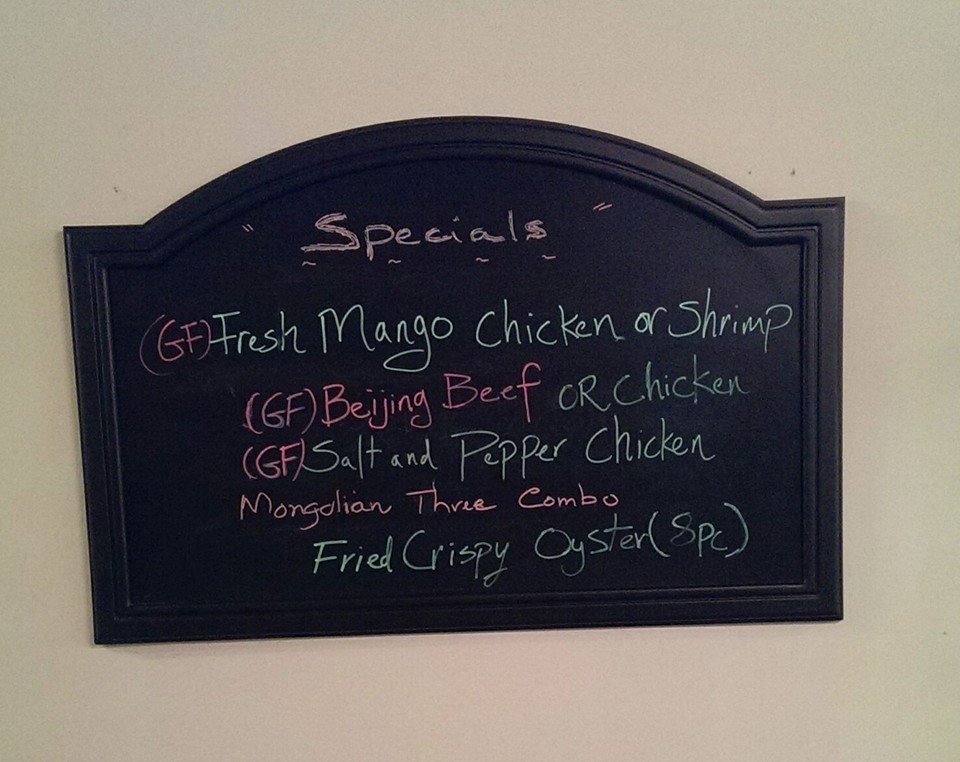 " Specials "
(GF) Fresh Mango Chicken or Shrimp
(GF) Beijing Beef OR Chicken
(GF) Salt and Pepper Chicken
Mongolian Three Combo
Fried Crispy Oyster (8pc)